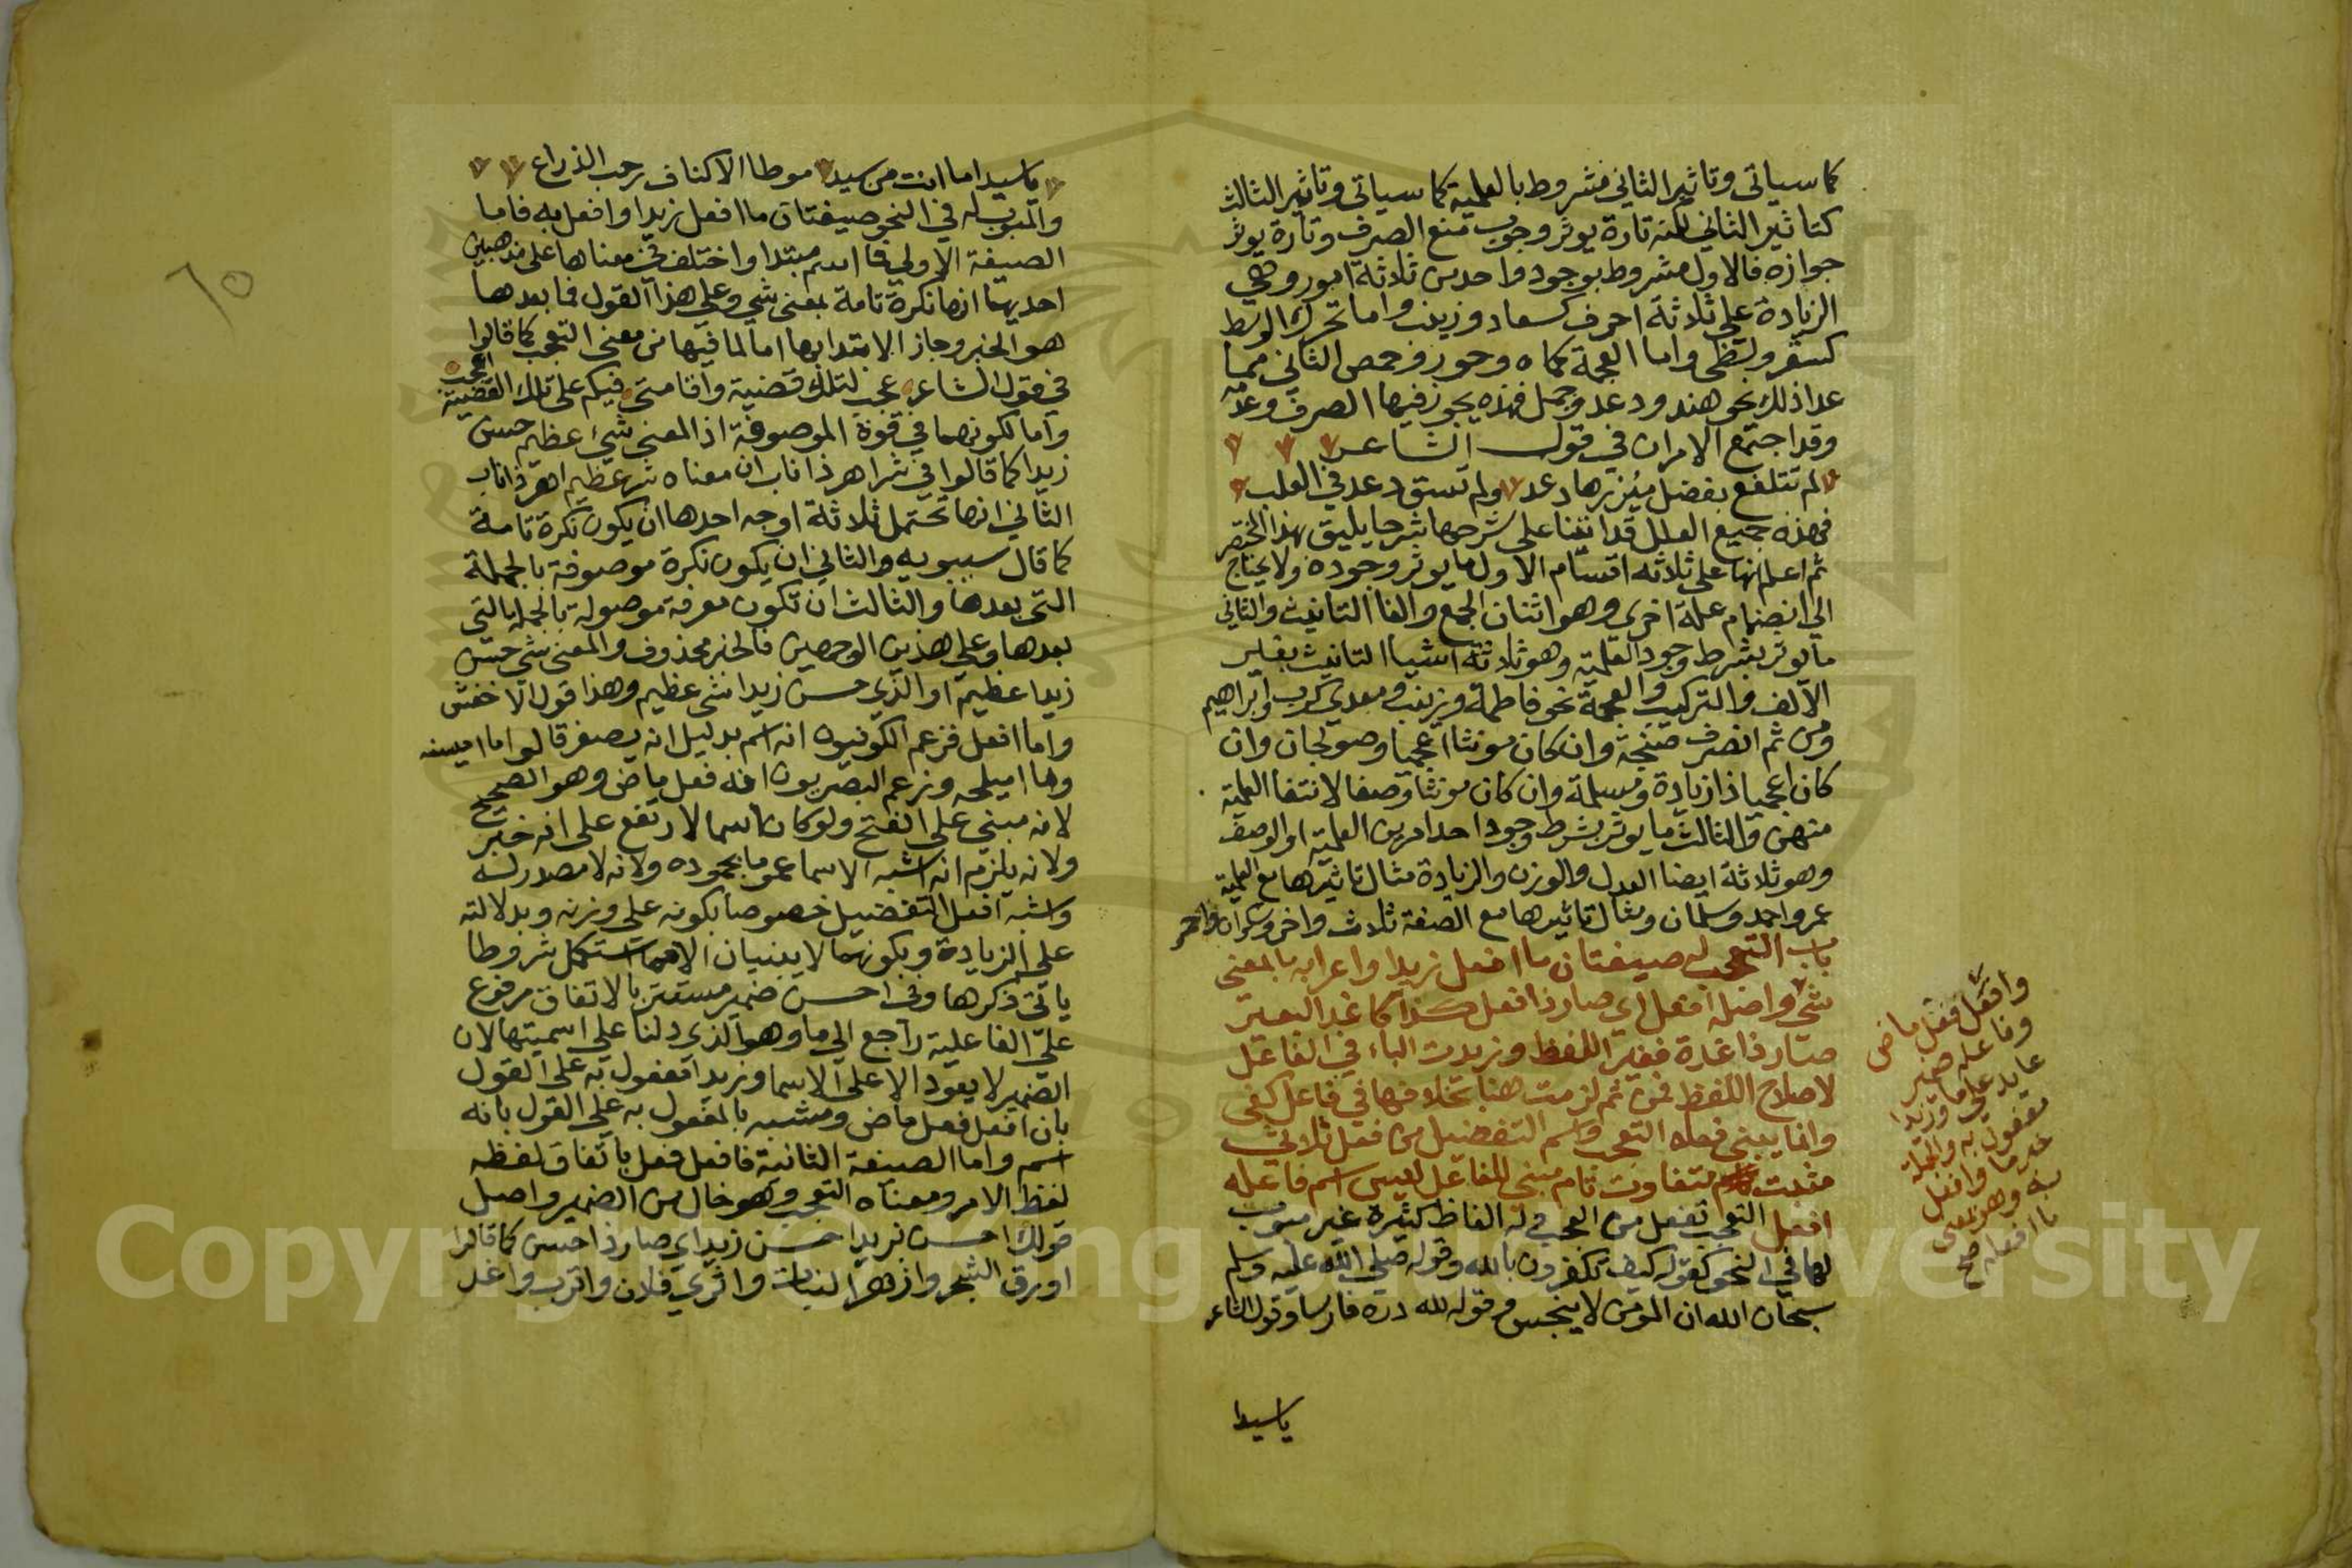 كما سياتى وتاثير الثاني مشروط بالعلمية كما سياتى وتاثير الثالث
كتاثير الثاني لكنه تارة يوثر وجوب منع الصرف وتارة يوثر
جوازه فالاول مشروط بوجود واحد من ثلاثة امور وهي
الزيادة على ثلاثة احرف كسعاد وزينب واما تحرك الوسط
كسقر ولظى واما العجمة كماه وجور وحمص الثاني مما
عدا ذلك نحو هند ودعد وجمل فهذه يجوز فيها الصرف وعدمه
وقد اجتمع الامران في قول الشاعر
لم تتلفع بفضل ميزرها دعد ولم تسق دعد في العلب
فهذه جميع العلل قد اتينا على شرحها شرحا يليق بهذا المختصر
ثم اعلم انها على ثلاثه اقسام الاول ما يوثر وجوده ولا يحتاج
الى انضمام علة اخرى وهو اثنان الجمع والفا التانيث والثاني
ما يوثر بشرط وجود العلمية وهو ثلاثة اشيا التانيث بغير
الالف والتركيب والعجمة نحو فاطمة وزينب ومعدي كرب وابراهيم
ومن ثم انصرف صنجة وان كان مونثا اعجميا وصولجان وان
كان اعجميا ذا زيادة ومسلمة وان كان مونثا وصفا لانتفا العلمية
منهن والثالث ما يوثر بشرط وجود احد امرين العلمية او الوصف
وهو ثلاثة ايضا العدل والوزن والزيادة مثال تاثيرها مع العلمية
عمر واحمد وسلمان ومثال تاثيرها مع الصفة ثلاث واخر وسكران واحمر
باب التعجب له صيغتان ما افعل زيدا واعرابه ما بمعنى
شي واصله افعل اي صار ذا افعل كذا كاغد البعير
صار ذا غدة فغير اللفظ وزيدت الباء في الفاعل
لاصلاح اللفظ فمن ثم لزمت هنا بخلافها في فاعل كفى
وانما يبنى فعلا التعجب واسم التفضيل من فعل ثلاثي
مثبت متفاوت تام مبني للفاعل ليس اسم فاعله
افعل التعجب تفعل من العجب وله الفاظ كثيرة غير مبوب
لها في النحو كقوله كيف تكفرون بالله وقوله صلى الله عليه وسلم
سبحان الله ان المومن لا ينجس وقوله لله دره فارسا وقول الشاعر
ياسيدا
وافعل فعل ماض
وفاعله ضمير
عايد على ما وزيدا
مفعول به والجملة
خبر ما وافعل
به وهو بمعنى
ما افعله صح
٦٥
ياسيدا ما انت من سيد موطا الاكناف رحب الذراع
والمبوب له في النحو صيغتان ما افعل زيدا وافعل به فاما
الصيغة الاولى فما اسم مبتدا واختلف في معناها على مذهبين
احديهما انها نكرة تامة بمعنى شي وعلى هذا القول فما بعدها
هو الخبر وجاز الابتدا بها اما لما فيها من معنى التعجب كما قالوا
في قول الشاعر عجب لتلك قضية واقامتى فيكم على تلك القضية اعجب
واما لكونها في قوة الموصوفة اذ المعنى شيء عظيم حسن
زيدا كما قالوا في شر اهر ذا ناب ان معناه شر عظيم اهر ذا ناب
الثاني انها تحتمل ثلاثة اوجه احدها ان يكون نكرة تامة
كما قال سيبويه والثاني ان يكون نكرة موصوفة بالجملة
التي بعدها والثالث ان تكون معرفة موصولة بالجملة التي
بعدها وعلى هذين الوجهين فالخبر محذوف والمعنى شي حسن
زيدا عظيم او الذي حسن زيدا شي عظيم وهذا قول الاخفش
واما افعل فزعم الكوفيون انه اسم بدليل انه يصغر قالوا ما احيسنه
وما اميلحه وزعم البصريون انه فعل ماض وهو الصحيح
لانه مبني على الفتح ولو كان اسما لارتفع على انه خبر
ولانه يلزم انه اشبه الاسما عموما بجموده ولانه لا مصدر له
واشبه افعل التفضيل خصوصا بكونه على وزنه وبدلالته
على الزيادة وبكونهما لا يبنيان الا مما استكمل شروطا
ياتي ذكرها وفي احسن ضمير مستتر بالاتفاق مرفوع
على الفاعلية راجع الى ما وهو الذي دلنا على اسميتها لان
الضمير لا يعود الا على الاسما وزيدا مفعول به على القول
بان افعل فعل ماض ومشبه بالمفعول به على القول بانه
اسم واما الصيغة الثانية فافعل فعل باتفاق لفظه
لفظ الامر ومعناه التعجب وهو خال من الضمير واصل
قولك احسن بزيد احسن زيد اي صار ذا حسن كما قالوا
اورق الشجر وازهر النبات واثرى فلان واترب واغد
Copyright © King Saud University